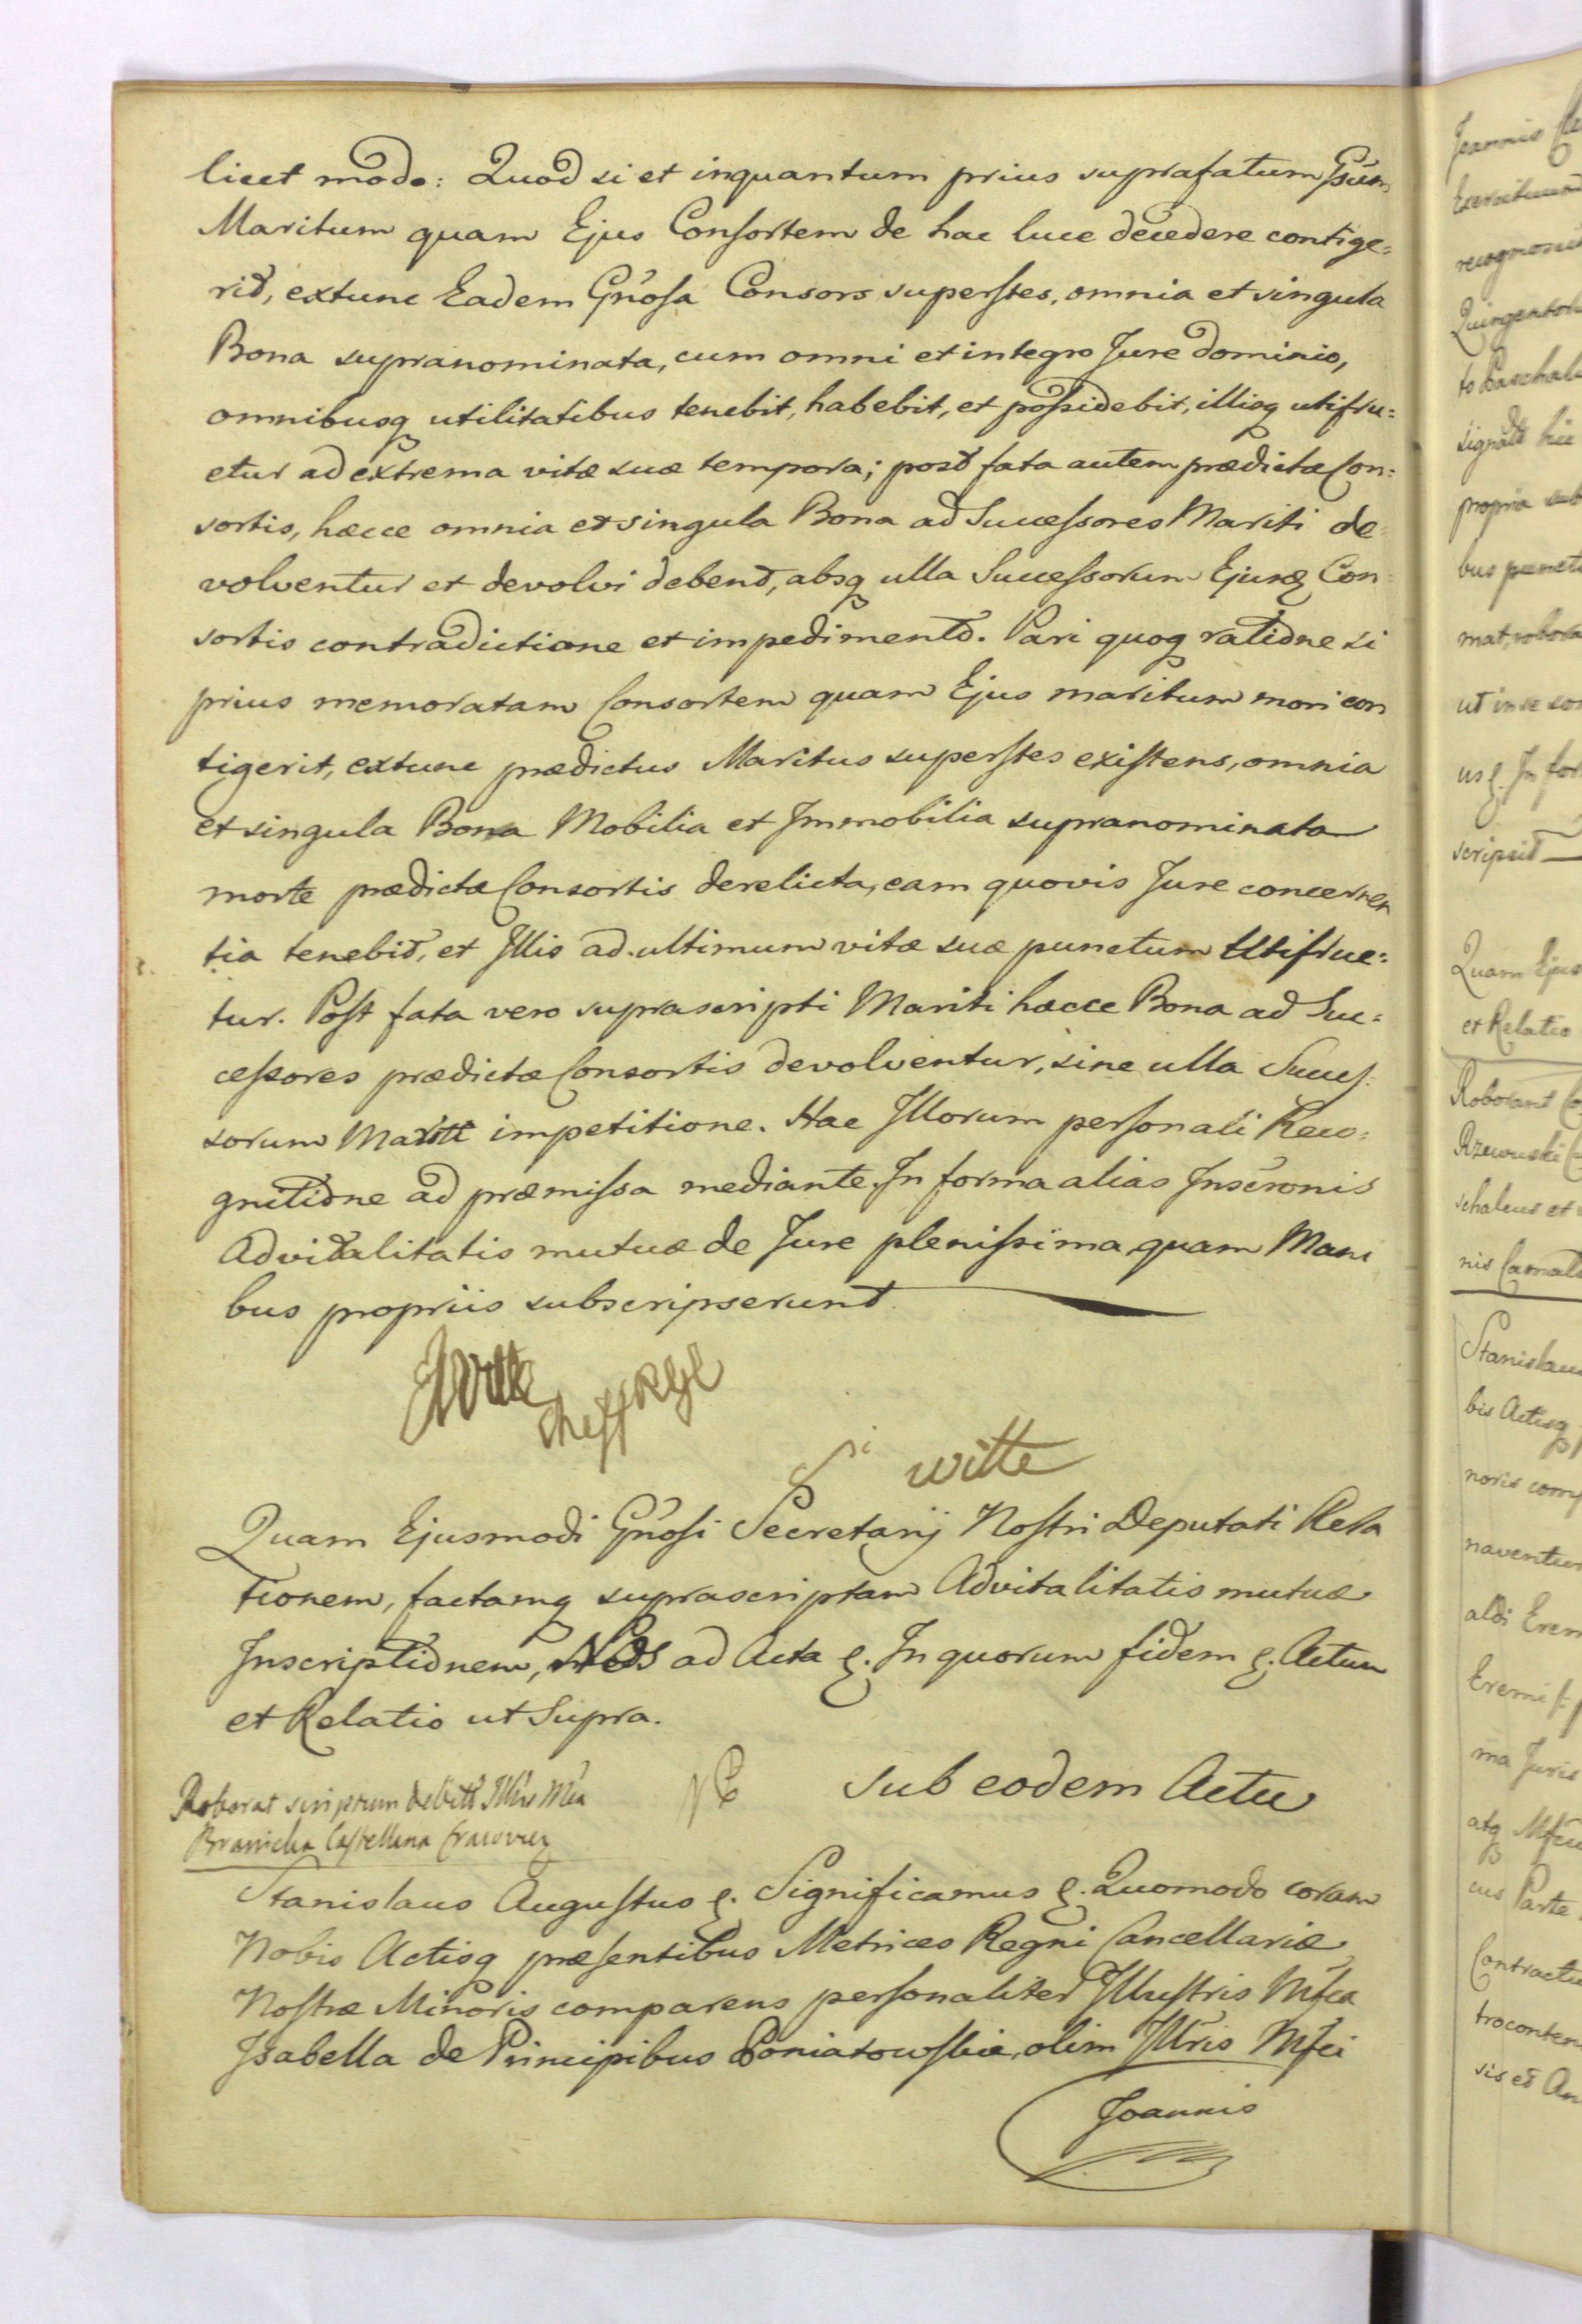 licet modo: Quod si et inquantum prius suprafatum Gsum
Maritum quam Ejus Consortem de hac luce decedere contige=
rit, extunc Eadem Gnosa Consors superstes, omnia et singula
Bona supranominata, cum omni et integro Jure dominio,
omnibusq utilitatibus tenebit, habebit, et possidebit, illisq utifru=
etur ad extrema vitæ suæ tempora; post fata autem prædictæ Con=
sortis, hæcce omnia et singula Bona ad Successores Mariti de
volventur et devolvi debent, absq ulla Successorum Ejusq Con=
sortis contradictione et impedimento. Pari quoq ratione si
prius memoratam Consortem quam Ejus maritum mori con
tigerit, extunc prædictus Maritus superstes existens, omnia
et singula Bona Mobilia et Immobilia supranominata
morte prædictæ Consortis derelicta, eam quovis Jure concernen
tia tenebit, et Illis ad ultimum vitæ suæ punctum Utifrue=
tur. Post fata vero suprascripti Mariti hæcce Bona ad Suc=
cessores prædictæ Consortis devolventur, sine ulla Succes=
sorum Mariti impetitione. Hac Illorum personali Reco=
gnitione ad præmissa mediante. In forma alias Inscronis
Advitalitatis mutuæ de Jure plenissima quam Mani
bus propriis subscripserunt
Witte
S witte
Quam Ejusmodi Gnosi Secretarij Nostri Deputati Rela
tionem, factamq suprascriptam Advitalitatis mutuæ
Inscriptionem, Nos ad Acta &. In quorum fidem &. Actum
et Relatio ut Supra.
Roborat scriptum debiti Illris Mca
Branicka Castellana Cracovien
Sub eodem Actu
Stanislaus Augustus &. Significamus &. Quomodo coram
Nobis Actisq præsentibus Metrices Regni Cancellariæ
Nostræ Minoris comparens personaliter Illustris Mfca
Isabella de Principibus Poniatowskie, olim Illris Mfci
Joannis